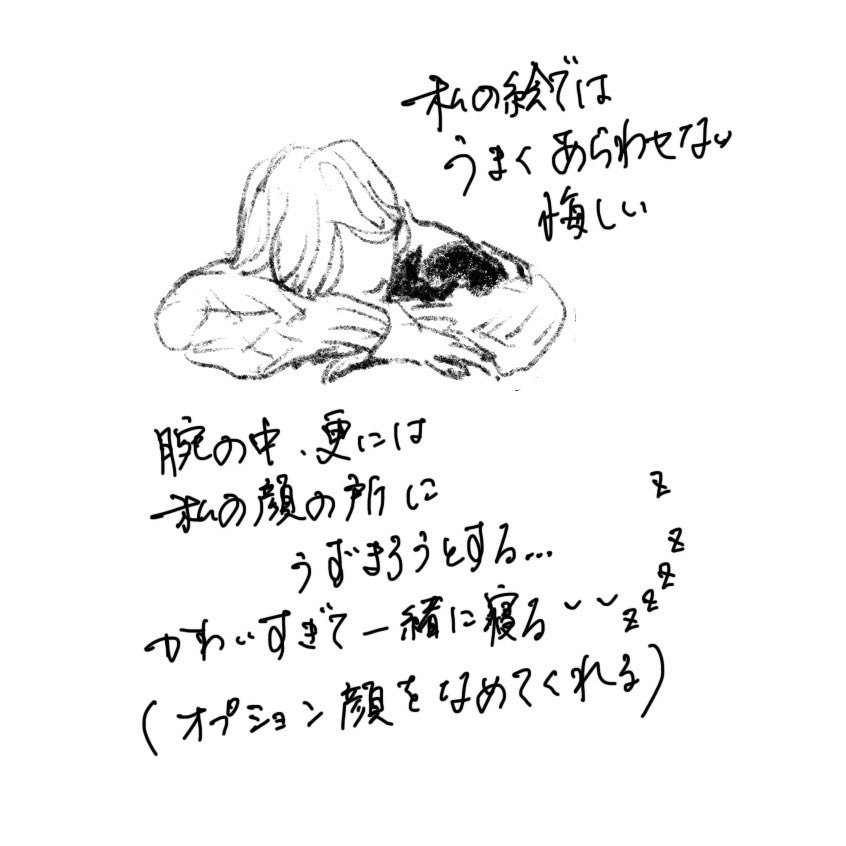 私の絵では
うまくあらわせない
悔しい
腕の中、更には
私の顔の所に
うずまろうとする...
かわいすぎて一緒に寝る
z z z z z
(オプション顔をなめてくれる)